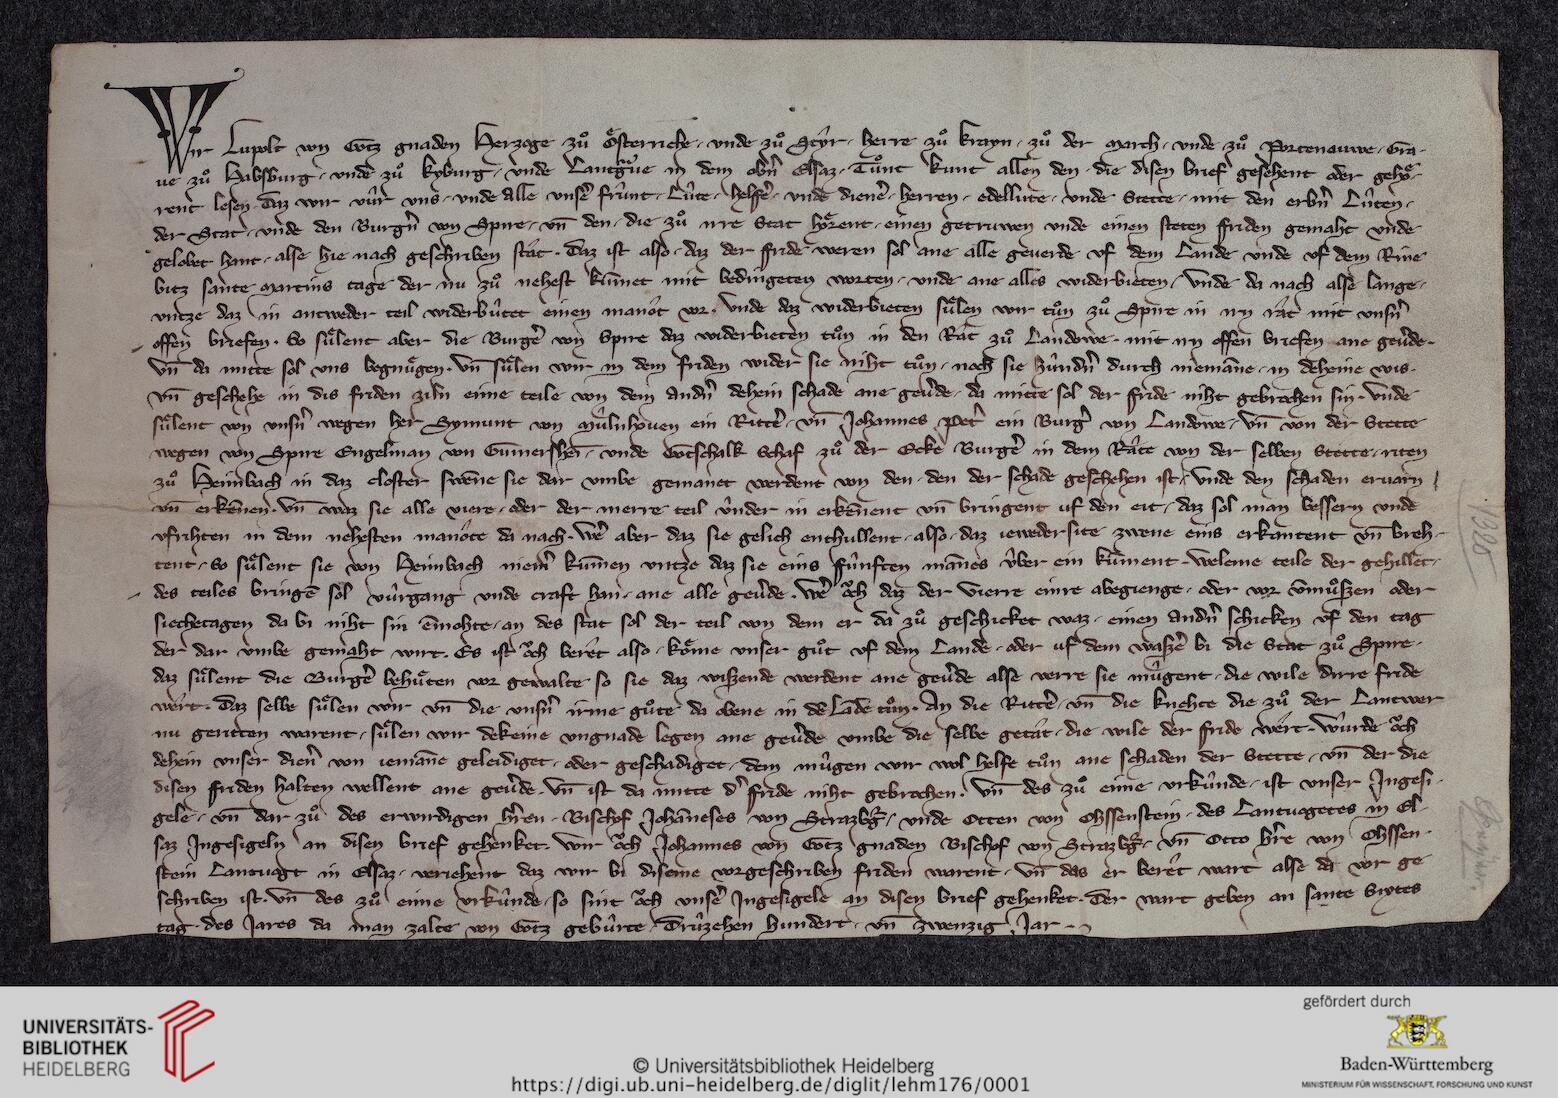 Wir Lupolt von Gotz gnaden Herzoge zuͦ Oͤsterriche · vnde zuͦ Styr · herre zuͦ Krayn · zuͦ der March · vnde zuͦ Portenauwe · Gra-
ue zuͦ Habsburg · vnde zuͦ Kyburg · vnde Lantgraue in dem obn̄ Elsaz · Tuͦnt kunt allen den · die disen brief gesehent oder gehoͤ-
rent lesen · Daz wir vûr vns · vnde alle vnser frûnt · Lûte · helfer · vnde diener · herren · edellute · vnde Stette · mit den erbn̄ Lûten ·
der Stat · vnde den Burgn̄ von Spire · vn̄ den · die zuͦ irre Stat hoͤrent · einen getruwen vnde einen steten friden gemaht vnde
gelobet hant · alse hie nach geschriben stât · Daz ist also · daz der fride weren sol ane alle geuerde vf dem Lande vnde vf dem Rine
bitz sante Martins tage der nu zuͦ nehest kūmet mit bedingeten worten · vnde ane alles widerbieten · Vnde da nach alse lange ·
vntze daz in antweder teil widerbûtet einen manôt vor · Vnde daz widerbieten suͤlen wir tuͦn zuͦ Spire in irn rât mit vnsn̄
offen briefen · So suͤlent aber die Burger von Spire daz widerbieten tuͦn in den Rât zuͦ Landowe · mit irn offen briefen ane geuerde ·
Vn̄ da mitte sol vns begnuͤgen · Vn̄ suͤlen wir in dem friden wider sie niht tuͦn · noch sie hindn̄ durch niemāne · in deheine wis ·
Vn̄ geschehe in dis friden ziln eime teile von dem andn̄ dehein schade ane geuerde · da mitte sol der fride niht gebrochen sin · Vnde
suͤlent von vnsn̄ wegen her Symunt von Mûlnhouen ein Ritter · vn̄ Johannes Peter ein Burger von Landowe · Vn̄ von der Stette
wegen von Spire Engelman von · vnde Gotschalk Schaf zuͦ der Ecke Burger in dem Râte von der selben Stette · riten
zuͦ Heimbach in daz closter swēne sie dar vmbe gemanet werdent von den · den der schade geschehen ist · Vnde den schaden eruarn
vn̄ erkēnen · Vn̄ waz sie alle viere · oder der merre teil vnder in erkēnent vn̄ bringent uf den eit · daz sol man bessern vnde
vfrihten in dem nehesten manôte da nach · Wer aber daz sie gelich enthullent · also · daz iewedersite zwene eins erkantent vn̄ breh-
tent · so suͤlent sie von Heimbach niemer kūmen vntze daz sie eins fûnften mānes vber ein kūment · Weleme teile der gehillet ·
des teiles bringē sol vûrgang vnde craft han · ane alle geuerde · Wer och daz der vierre einre abegienge · oder vor vnmuͦszen oder
siechetagen da bi niht sin ēmohte · an des stat sol der teil von dem er da zuͦ geschicket waz · einen andn̄ schicken vf den tag
der dar vmbe gemaht wirt · Es ist och beret also · koͤme vnser guͦt vf dem Lande · oder uf dem waszer bi die Stat zuͦ Spire ·
daz suͤlent die Burger behuͤten vor gewalte · so sie daz wiszende werdent ane geuerde alse verre sie mûgent · die wile dirre fride
wert · Daz selbe suͤlen wir vn̄ die vnsn̄ irme guͦte da obene in de Lāde tuͦn · An die Ritter · vn̄ die knehte die zuͦ der Lantwer
nu geritten warent · suͤlen wir dekeine vngnade legen ane geuerde vmbe die selbe getât · die wile der fride wert · Wurde och
dehein vnser dien̄ von iemāne geleidiget · oder geschadiget · dem mûgen wir wol helfe tuͦn ane schaden der Stette · vn̄ der die
disen friden halten wellent ane geuerde · Vn̄ ist da mitte der fride niht gebrochen · Vn̄ des zuͦ eime vrkûnde · ist vnser Ingesi ·
gele · vn̄ dar zuͦ des erwirdigen hern · Bischof Johāneses von Strazbg · vnde Otten von Ohssenstein · des Lantuogetes in El-
saz Ingesigeln an disen brief gehenket · Wir och Johannes von Gotz gnaden Bischof von Strazbg · vn̄ Otto herre von Ohssen ·
stein Lantuogt in Elsaz · veriehent daz wir bi diseme vorgeschriben friden warent · Vn̄ das er beret wart alse da vor ge
schriben ist · Vn̄ des zuͦ eime vrkûnde · so sint och vnser Ingesigele an disen brief gehenket · Der wart geben an sante Sixtes
tag · des Jares da man zalte von Gotz gebûrte · Drûzehen hundert · vn̄ zwenzig Jar ·
UNIVERSITÄTS-
BIBLIOTHEK
HEIDELBERG
© Universitätsbibliothek Heidelberg
https://digi.ub.uni-heidelberg.de/diglit/lehm176/0001
gefördert durch
Baden-Württemberg
MINISTERIUM FÜR WISSENSCHAFT, FORSCHUNG UND KUNST